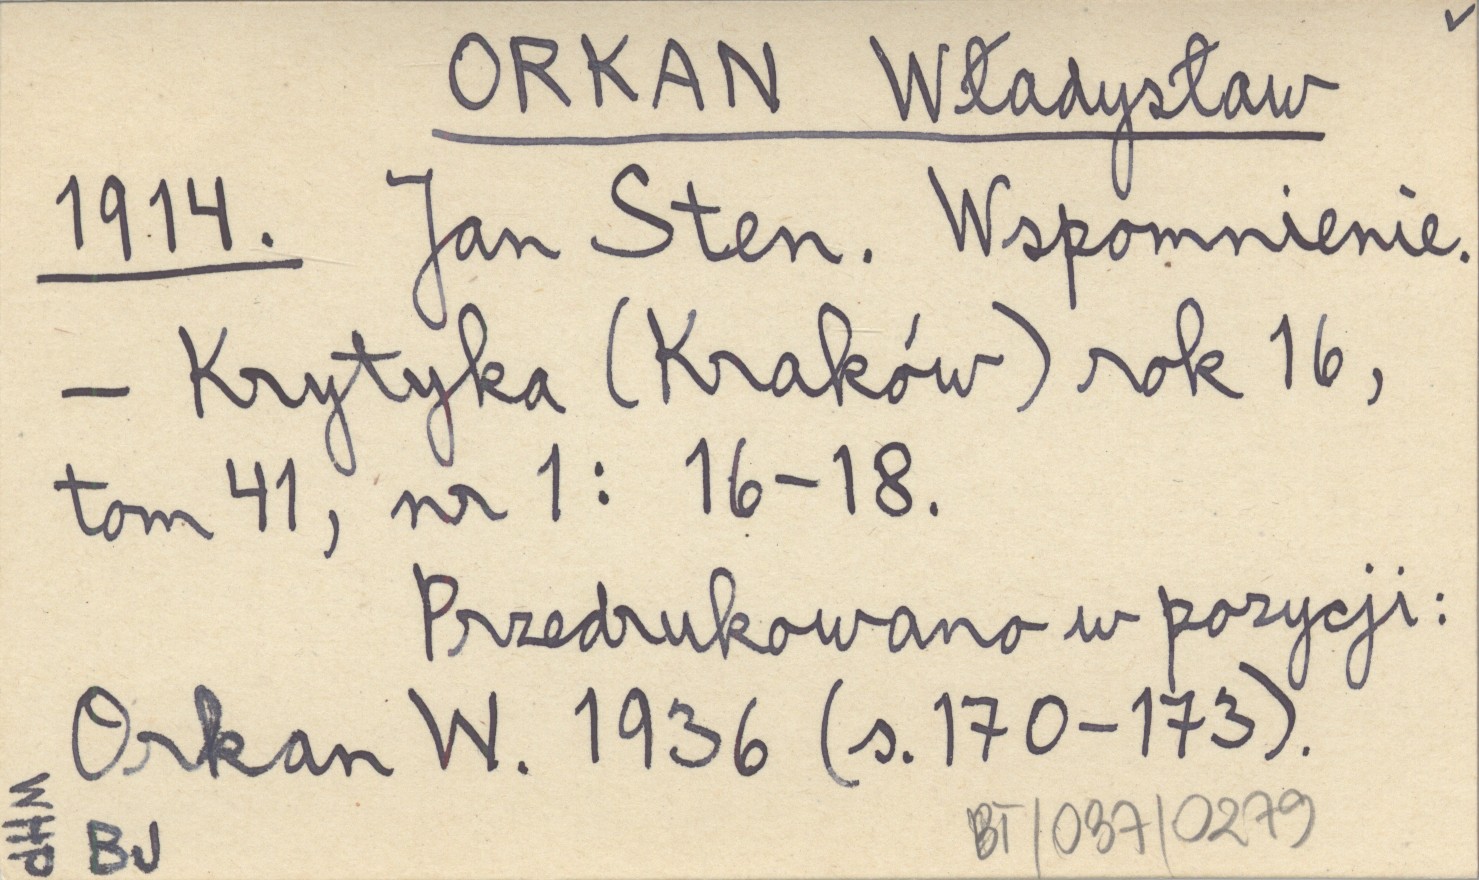 ORKAN Władysław
1914. Jan Sten. Wspomnienie.
– Krytyka (Kraków) rok 16,
tom 41, nr 1: 16–18.
Przedrukowano w pozycji:
Orkan W. 1936 (s. 170–173).
WHP
BJ
BT/037/0279